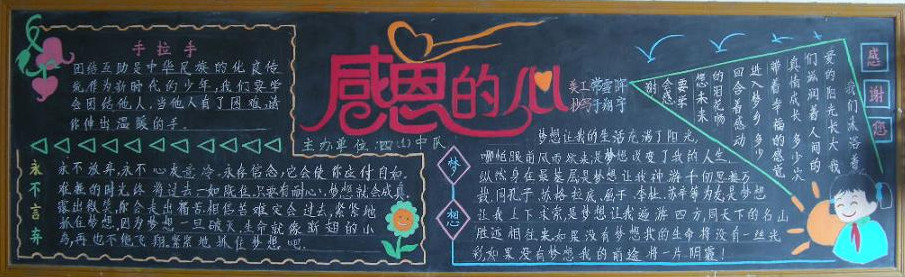 手拉手
团结互助是中华民族的优良传
统,作为新时代的少年,我们要学
会团结他人,当他人有了困难,请
你伸出温暖的手。
感恩的心
美工
主办单位:四(4)中队
永不言弃
永不放弃,永不心灰意冷。永存信念,它会使你应付自如。
难熬的时光终将过去一如既往,只要有耐心,梦想就会成真。
露出微笑,你会走出痛苦,相信苦难定会过去,紧紧地
抓住梦想,因为梦想一旦破灭,生命就像断翅的小
鸟,再也不能飞翔。紧紧地抓住梦想吧。
我们沐浴着
爱的阳光长大
我们滋润着人间的
真情成长 多少次
带着幸福的感觉
进入梦乡 多少
回含着感动
的泪花畅
想未来
要学
会感
谢
感谢您
梦想
梦想让我的生活充满了阳光,
哪怕眼前风雨欲来,是梦想改变了我的人生,
纵然身在最基层是梦想让我神游千仞思接万
载,同孔子、苏格拉底、屈子、李杜、苏辛等为友,是梦想
让我上下求索,是梦想让我遨游四方,同天下的名山
胜迹相往来,如果没有梦想我的生命将没有一丝光
彩,如果没有梦想我的前途将一片阴霾!